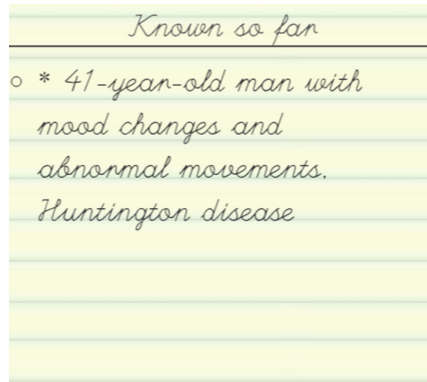 Known so far
* 41-year-old man with
mood changes and
abnormal movements.
Huntington disease